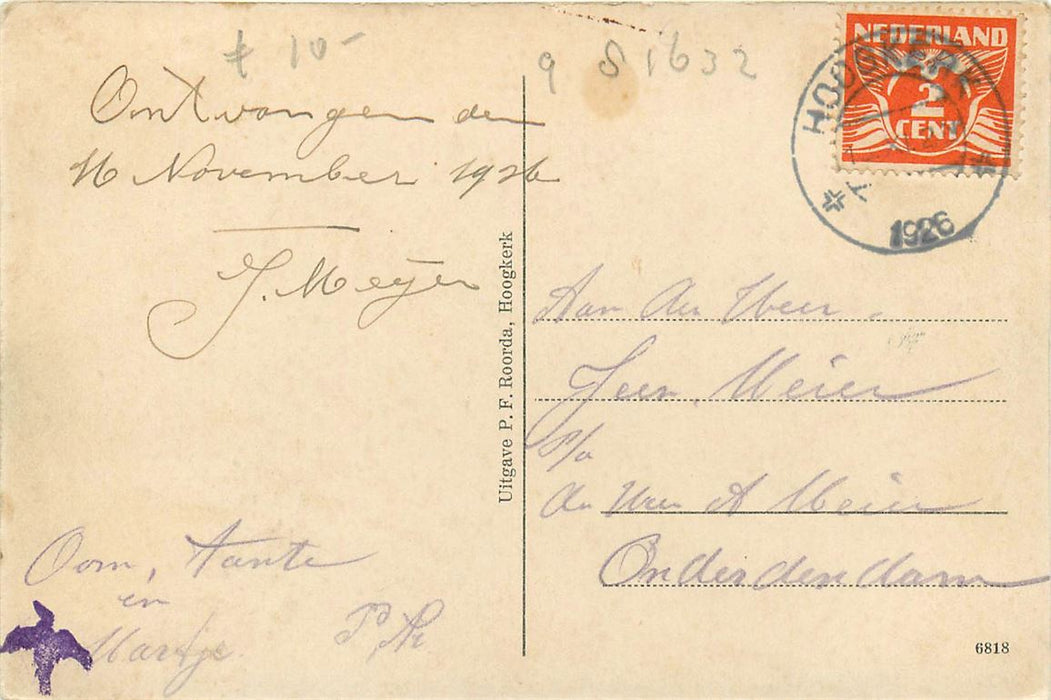 f 10-
9 8 1632
NEDERLAND
2
CENT
HOOGKERK
1926
Ontvangen den
16 November 1926
J. Meÿer
Uitgave P. F. Roorda, Hoogkerk
Aan den Heer
Jeen Meier
p/a
den Heer A Meier
Onderdendam
Oom, Tante
en
Martje
6818